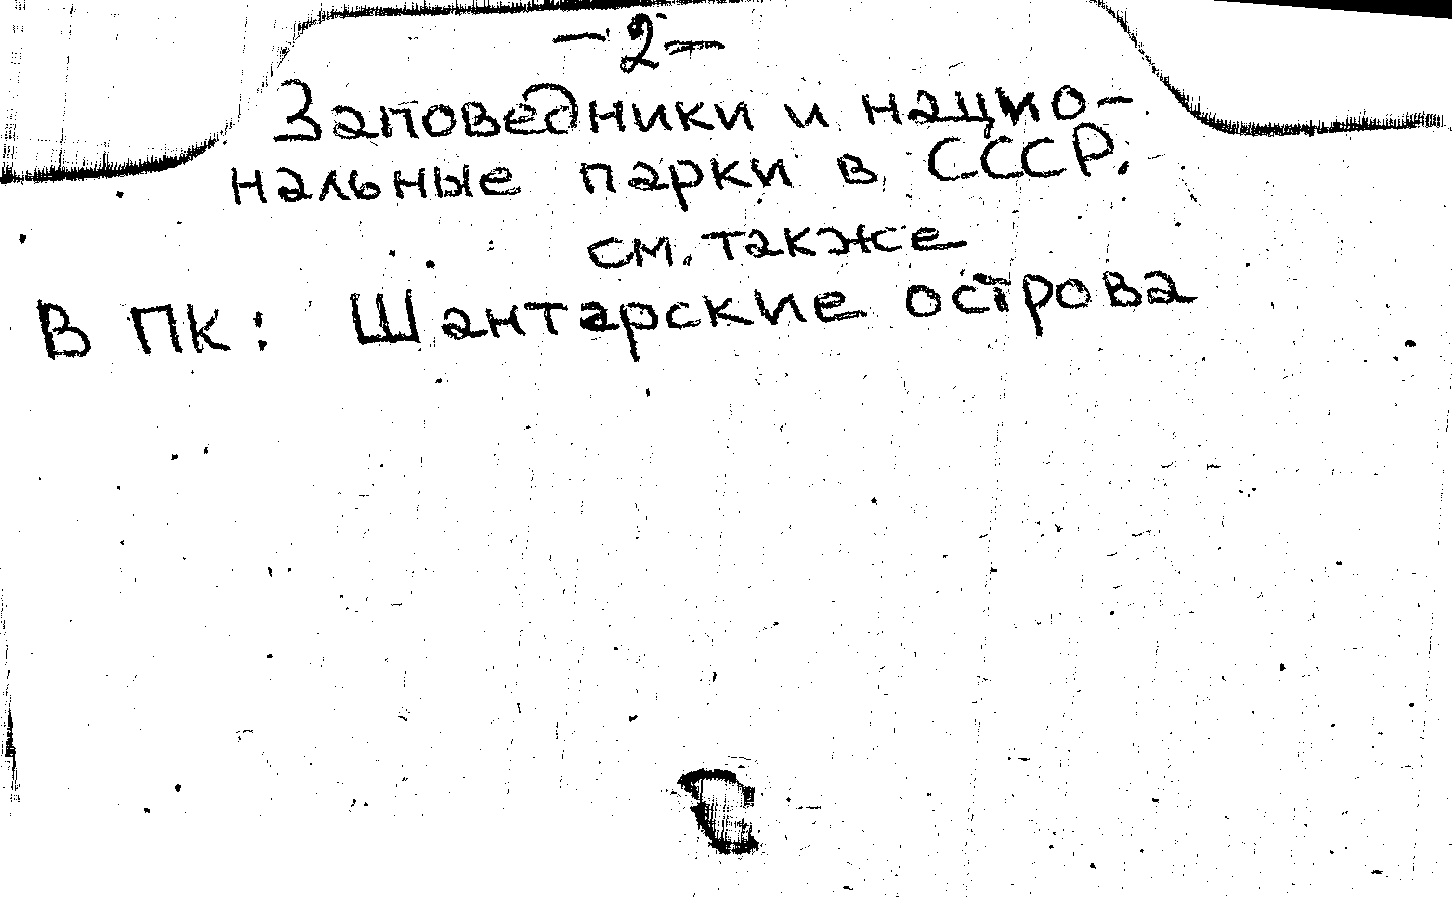 -2-
Заповедники и нацио-
нальные парки в СССР.
см. также
В ПК: Шантарские острова